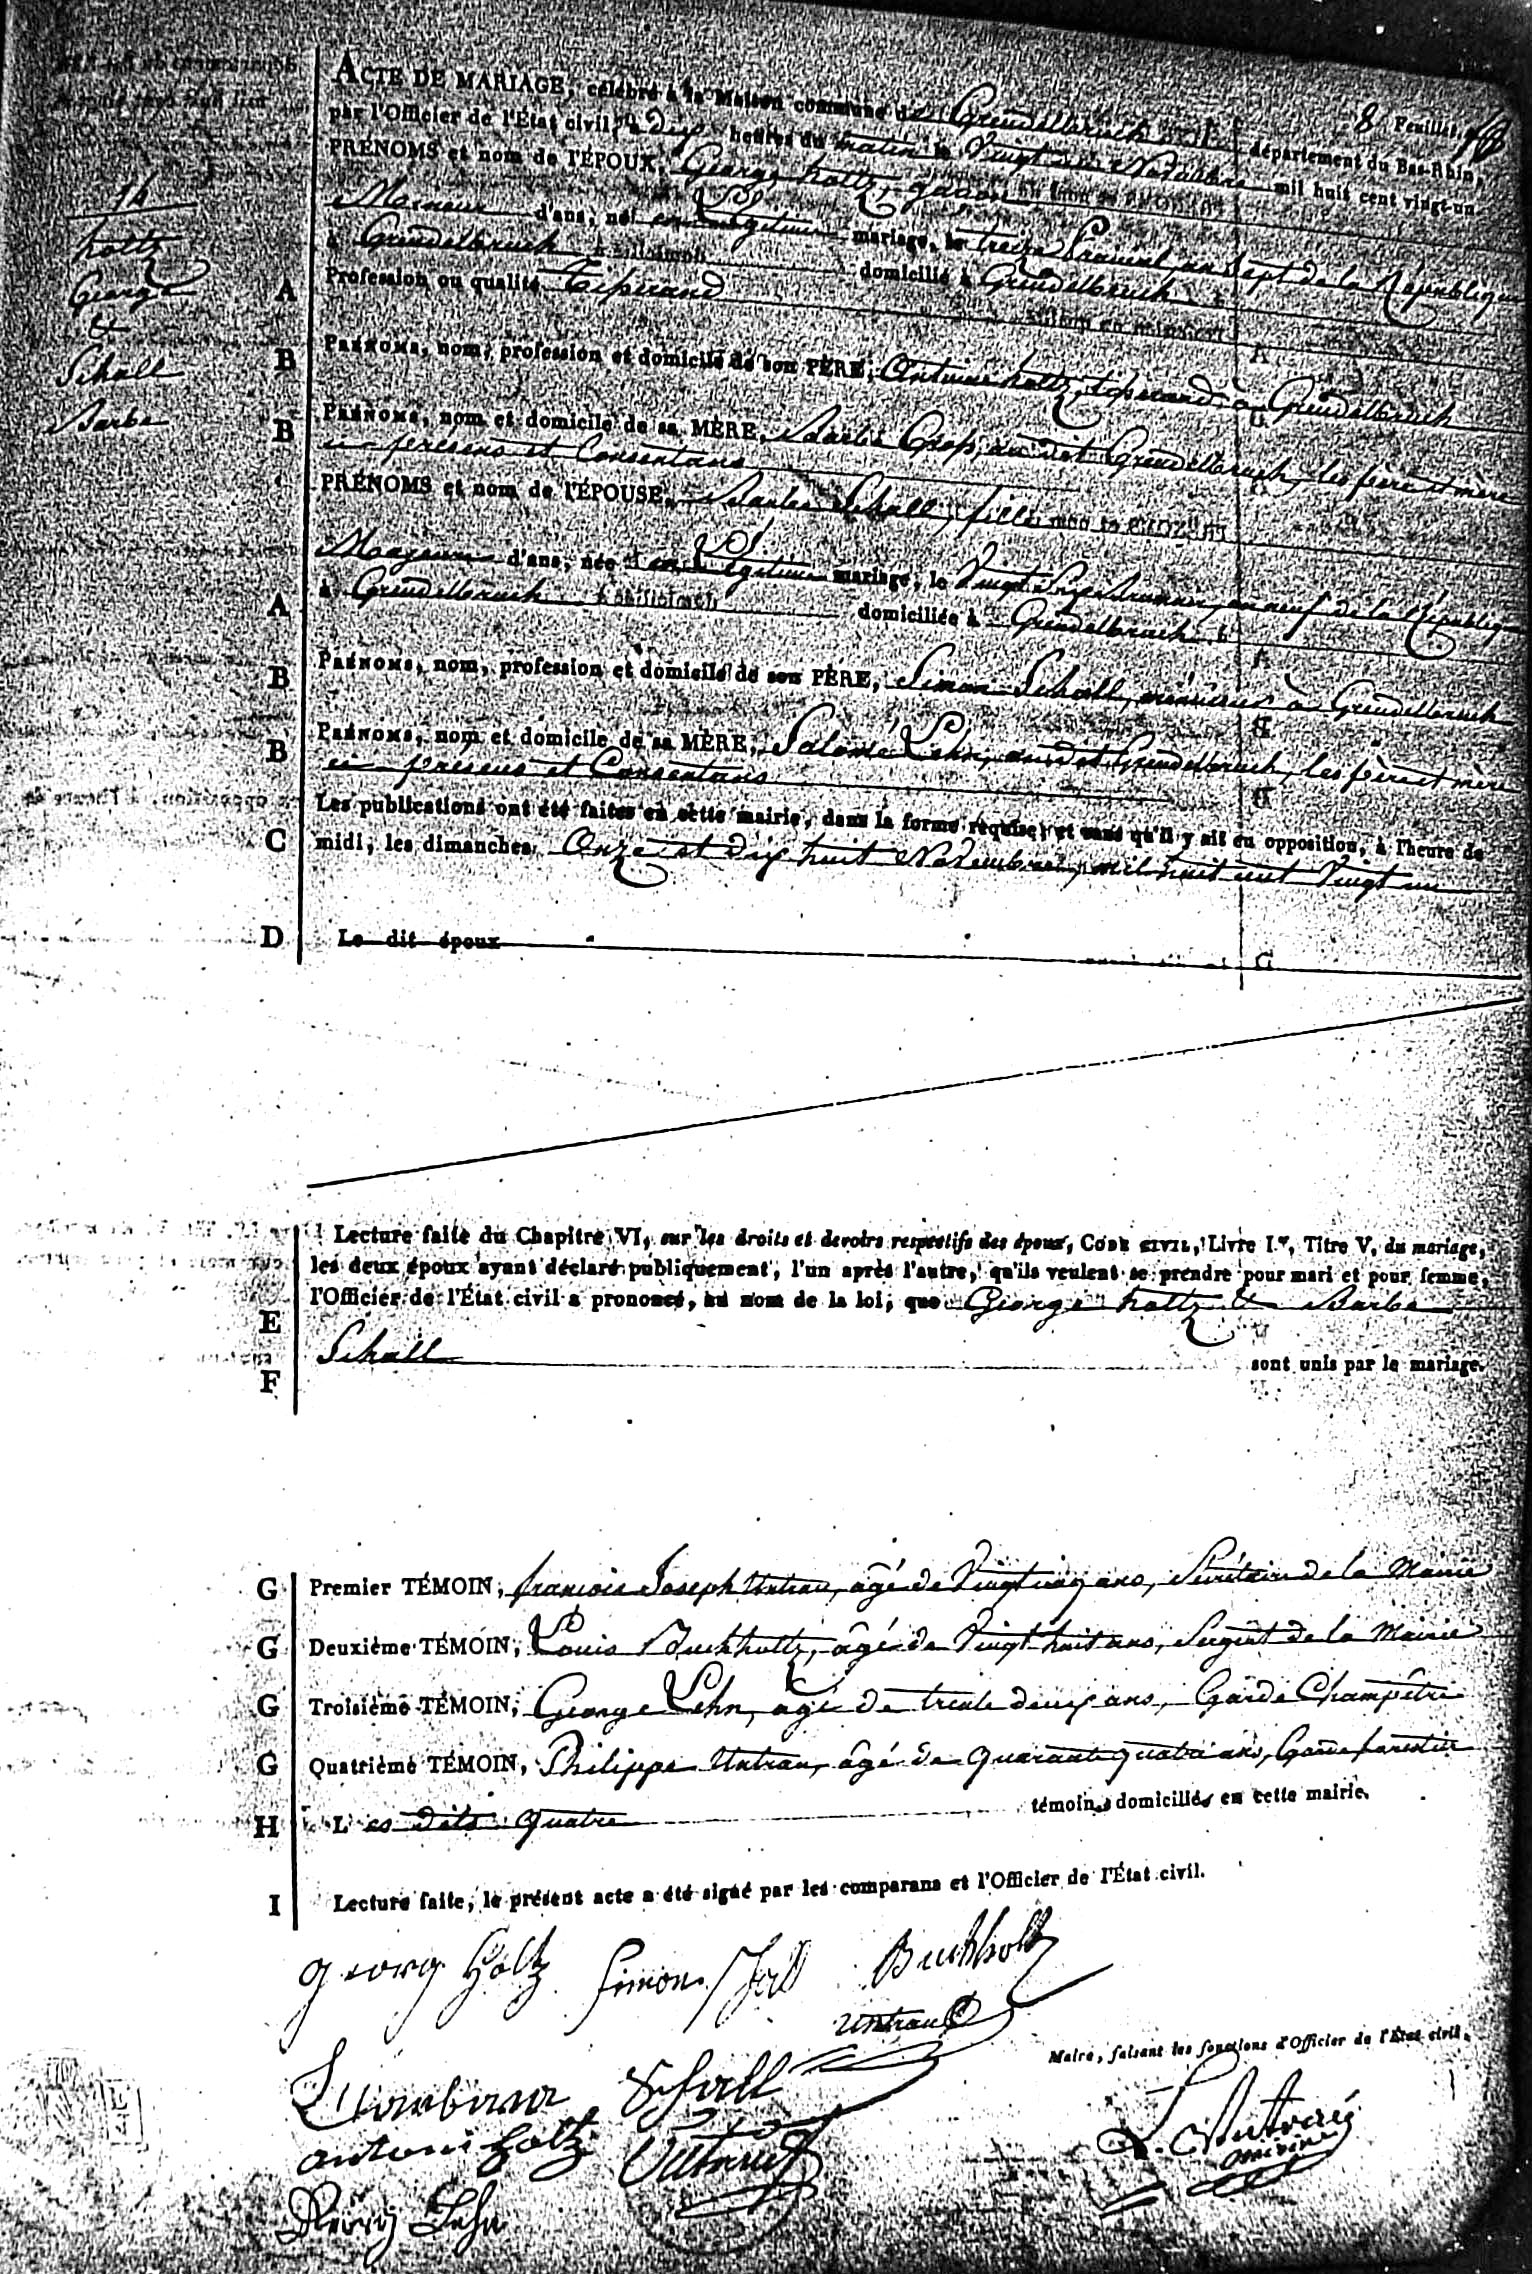 8 Feuillet,
ACTE DE MARIAGE, célébré à la Maison commune de Grendelbruch département du Bas-Rhin,
par l'Officier de l'État civil, à dix heures du matin le Vingt Novembre mil huit cent vingt-un
PRÉNOMS et nom de l'ÉPOUX, George holtz, garçon
14
holtz
George
&
Schall
Barbe
Mineur d'ans, né en Légitime mariage, le treize Prairial, an Sept de la République
à Grendelbruch domicilié à Grendelbruch
A Profession ou qualité Tisserand
B PRÉNOMS, nom, profession et domicile de son PÈRE, Antoine holtz, tisserand à Grendelbruch
B PRÉNOMS, nom et domicile de sa MÈRE, Barbe au dit Grendelbruch, les père et mère
ici présens et Consentans
PRÉNOMS et nom de l'ÉPOUSE, Barbe Schall, fille
d'ans, née en Légitime mariage, le Vingt Brumaire, an neuf de la République
A à Grendelbruch domiciliée à Grendelbruch
B PRÉNOMS, nom, profession et domicile de son PÈRE, Simon Schall, à Grendelbruch
B PRÉNOMS, nom et domicile de sa MÈRE, Salomé Lehn, au dit Grendelbruch, les père et mère
ici présens et Consentans
Les publications ont été faites en cette mairie, dans la forme requise, et sans qu'il y ait eu opposition, à l'heure de
C midi, les dimanches Onze et dix huit Novembre, mil huit cent Vingt un
D Le dit époux
Lecture faite du Chapitre VI, sur les droits et devoirs respectifs des époux, CODE CIVIL, Livre I.er, Titre V, du mariage,
les deux époux ayant déclaré publiquement, l'un après l'autre, qu'ils veulent se prendre pour mari et pour femme,
E l'Officier de l'État civil a prononcé, au nom de la loi, que George holtz & Barbe
F Schall sont unis par le mariage.
G Premier TÉMOIN, françois Joseph Untrau, âgé de Vingt cinq ans, Secrétaire de la Mairie
G Deuxième TÉMOIN, Louis Buchholtz, âgé de Vingt huit ans, Sergent de la Mairie
G Troisième TÉMOIN, George Lehn, agé de trente deux ans, Garde Champêtre
G Quatrième TÉMOIN, Philippe Untrau, âgé de quarante quatre ans, Garde forestier
H Les dits quatre témoins domiciliés en cette mairie.
I Lecture faite, le présent acte a été signé par les comparans et l'Officier de l'État civil.
georg Holtz Simon Schall Buchholtz
untrau
Maire, faisant les fonctions d'Officier de l'État civil.
Barbara Schall
antoni holtz Untrau
Georg Lehn
maire